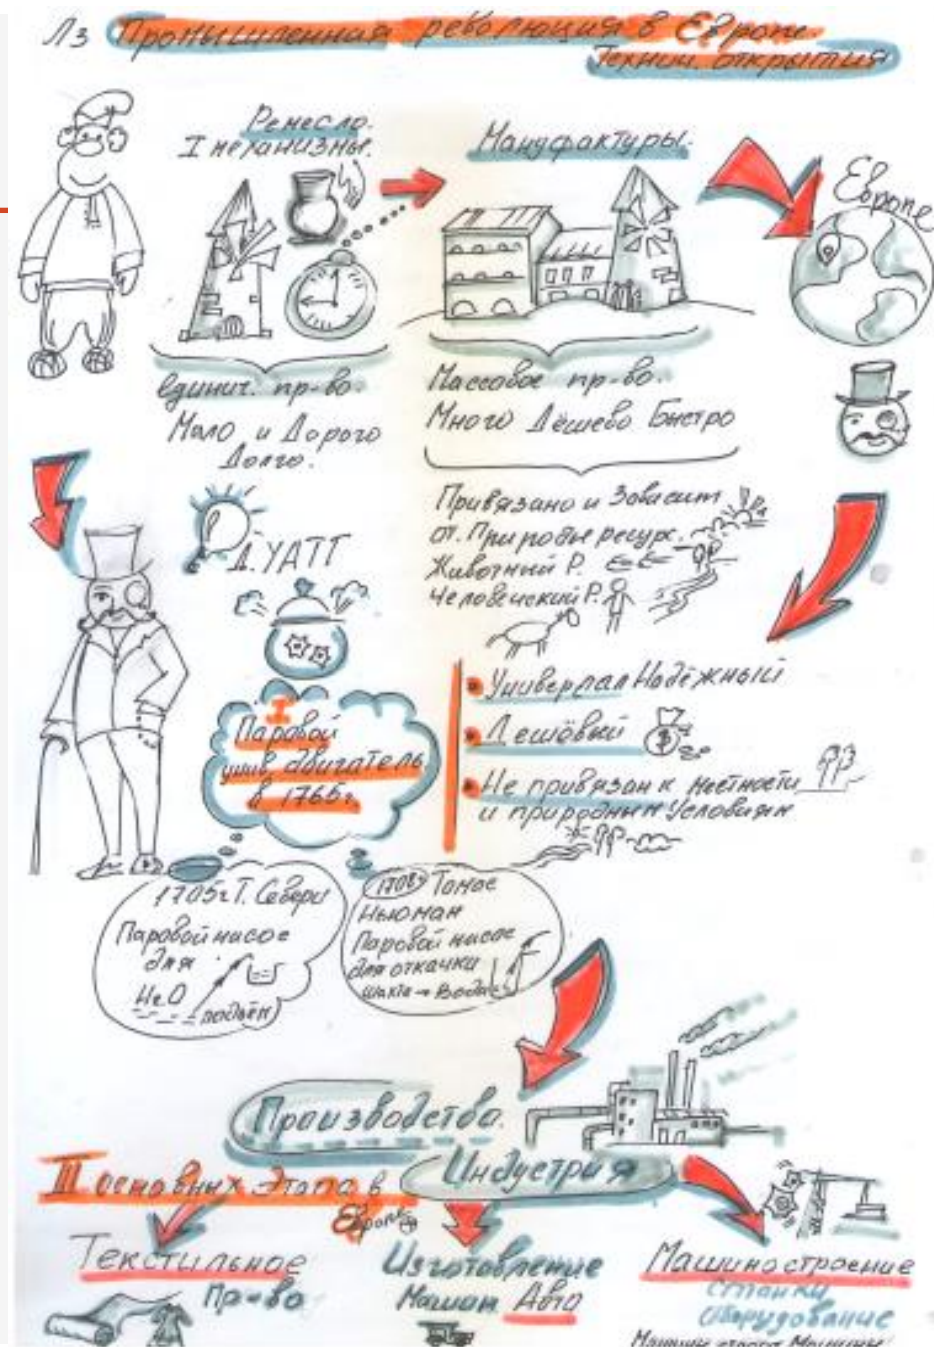 Л3 Промышленная революция в Европе.
Технич. открытия
Ремесло.
I механизмы.
Мануфактуры.
Европе
единич. пр-во.
Мало и Дорого
Долго.
Массовое пр-во.
Много Дёшево Быстро
Привязано и Зависит
от. Природы ресурс.
Животный Р.
Человеческий Р.
Д. УАТТ
I
Паровой
унив двигатель
в 1765г.
Универсал Надёжный
Дешёвый
Не привязан к местности
и природным условиям
1705г Т. Севери
Паровой насос
для
H2O
подъём
1708г Томас
Ньюман
Паровой насос
для откачки
шахта → Вода
Производства.
Индустрия
III основных Этапа в
Европе
Текстильное
Пр-во
Изготовление
Машин Авто
Машиностроение
Станки
Оборудование
Машины